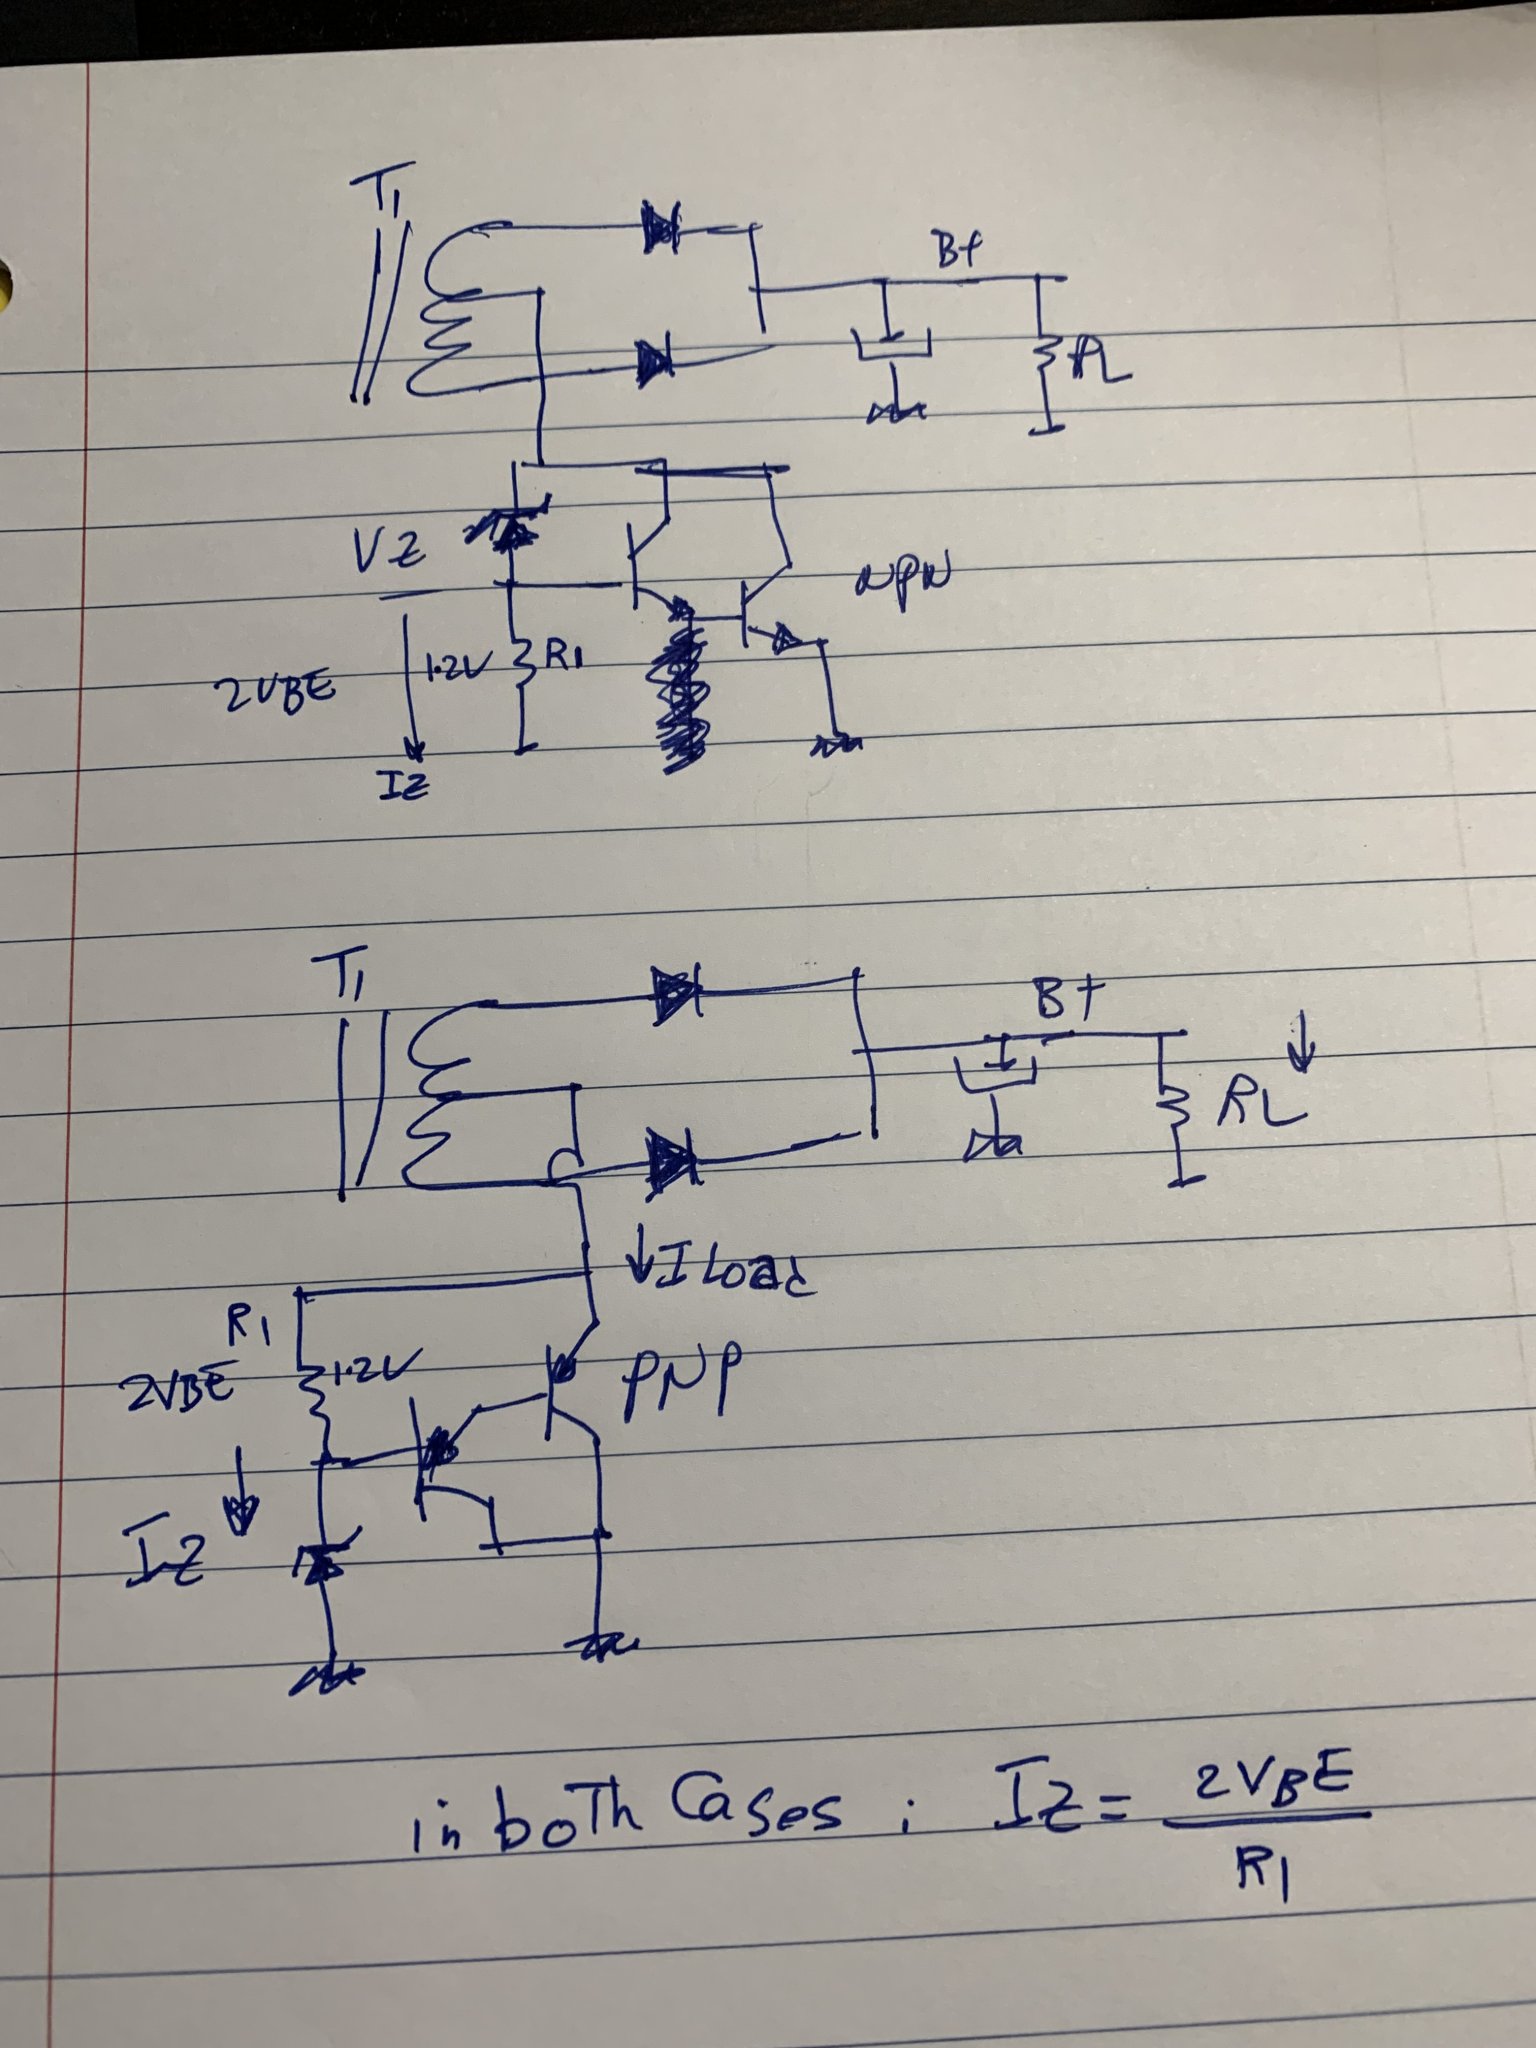 T1
B+
RL
VZ
NPN
2VBE 1.2V R1
IZ
T1
B+
RL
I Load
R1
2VBE 1.2V PNP
IZ
in both Cases ; IZ = 2VBE
R1